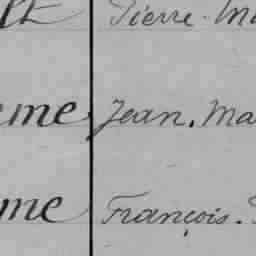 Pierre. M
eme Jean. Ma
me François.